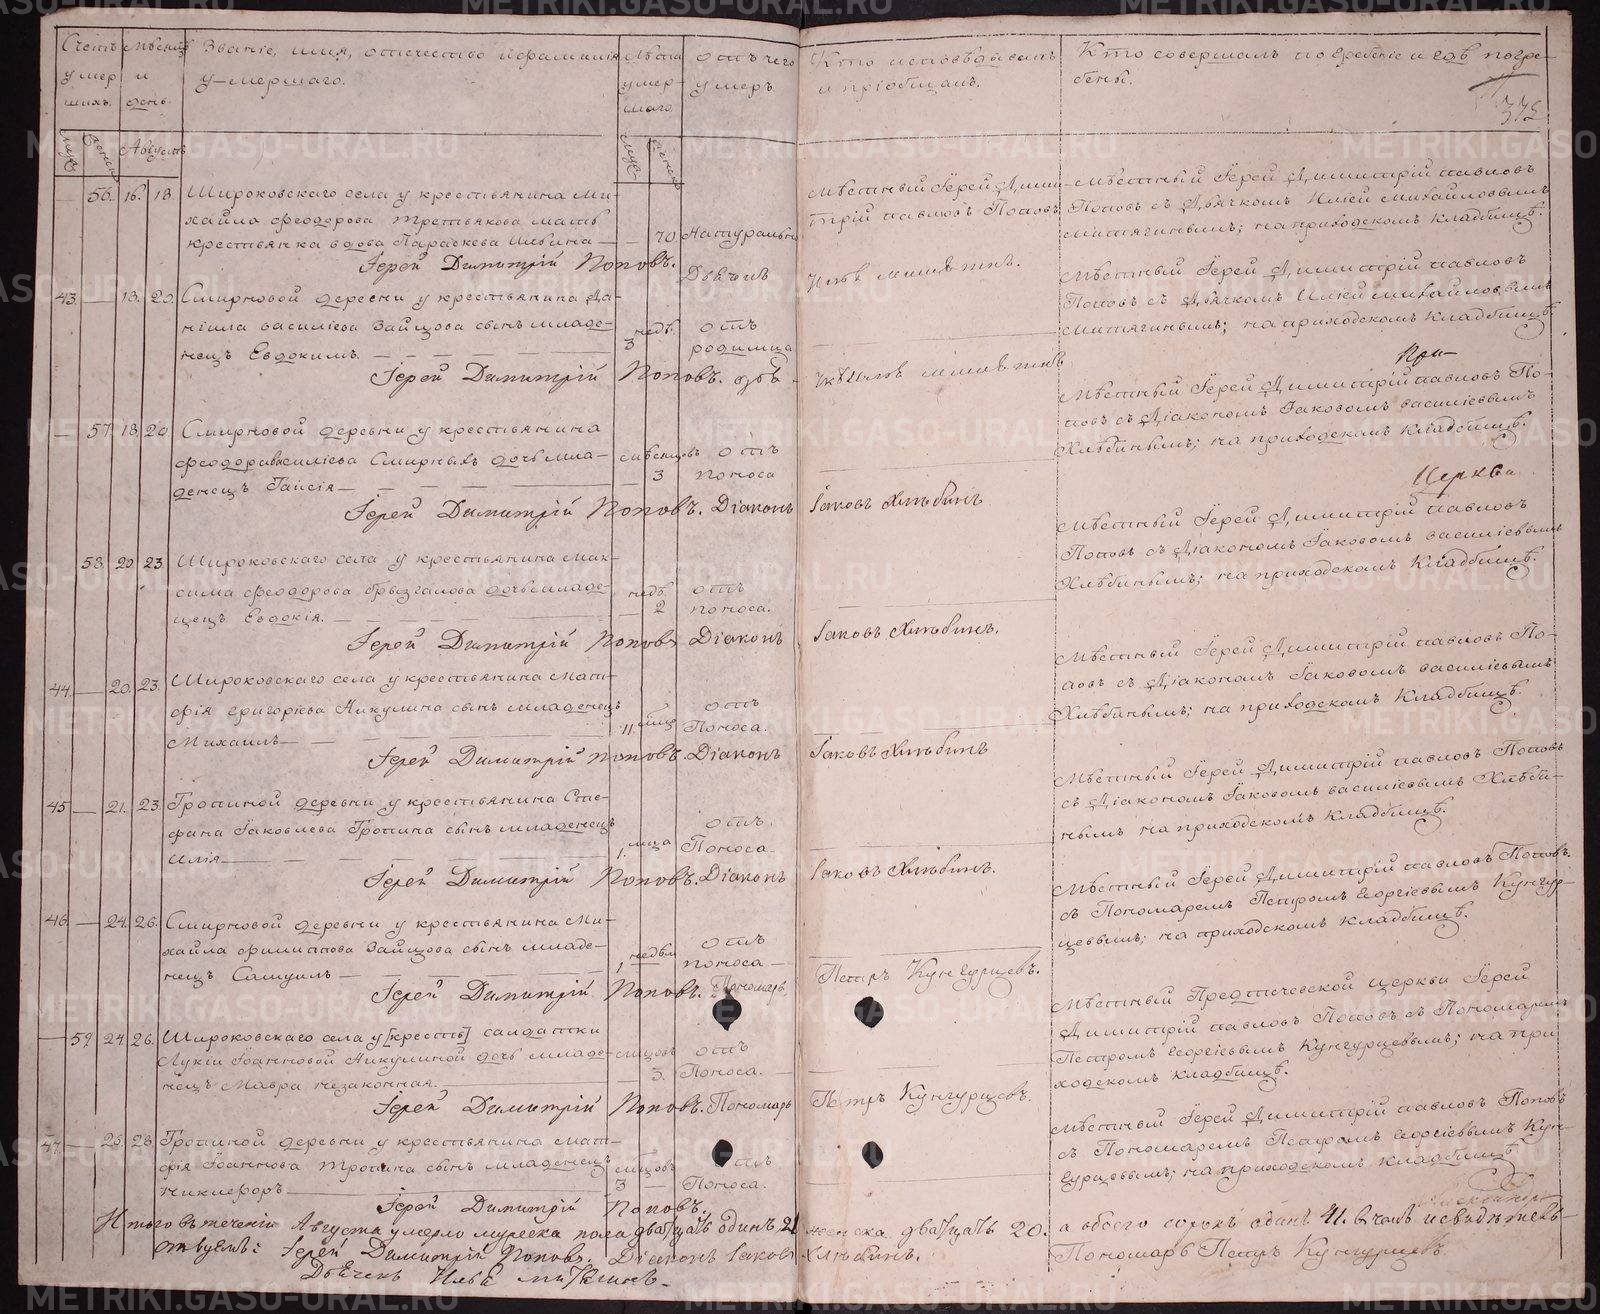 Счетъ умершихъ.
Мѣсяцъ и день.
Званіе, имя, отечество и фамилія умершаго.
Лѣта умершаго
отъ чего умеръ.
Кто исповѣдывалъ и пріобщалъ.
Кто совершалъ погребеніе и гдѣ погребены.
372
Августъ
56. 16. 18. Широковскаго села у крестьянина Ми-
хайла Феодорова Третьякова мать
крестьянка вдова Параскева Ильина — 70 Натурально
Мѣстный Іерей Дими-
трій павловъ Поповъ
Мѣстный Іерей Димитрій павловъ
Поповъ съ Дьячкомъ Иліей михайловымъ
митягинымъ; на приходскомъ кладбищѣ.
Іерей Димитрій Поповъ. Дьячекъ Илья митягинъ.
43. — 18. 20. Смирновой деревни у крестьянина Да-
ніила василіева Зайцова сынъ младе-
нецъ Евдокимъ. — недѣ. 3 отъ родимца
Мѣстный Іерей Димитрій павловъ
Поповъ съ Дьячкомъ Иліей михайловымъ
митягинымъ; на приходскомъ кладбищѣ.
Іерей Димитрій Поповъ.
При-
— 57. 18. 20. Смирновой деревни у крестьянина
Феодора василіева Смирныхъ дочь мла-
денецъ Таисія — мѣсяцовъ 3 отъ поноса
Мѣстный Іерей Димитрій павловъ По-
повъ съ Діакономъ Іаковомъ василіевымъ
Хлѣбинымъ; на приходскомъ кладбищѣ.
Іерей Димитрій Поповъ. Діаконъ Іаковъ Хлѣбинъ
Церкви.
58. 20. 23 Широковскаго села у крестьянина Мак-
сима Феодорова Брызгалова дочь младе-
нецъ Евдокія. — недѣ. 2 отъ поноса.
Мѣстный Іерей Димитрій павловъ
Поповъ съ Діакономъ Іаковомъ василіевымъ
Хлѣбинымъ; на приходскомъ кладбищѣ.
Іерей Димитрій Поповъ Діаконъ Іаковъ Хлѣбинъ.
44. — 20. 23. Широковскаго села у крестьянина Мат-
фія григоріева Никулина сынъ младенецъ
Михаилъ — 11 отъ Поноса.
Мѣстный Іерей Димитрій павловъ По-
повъ съ Діакономъ Іаковомъ василіевымъ
Хлѣбинымъ; на приходскомъ кладбищѣ.
Іерей Димитрій Поповъ. Діаконъ Іаковъ Хлѣбинъ
45 — 21. 23. Тропиной деревни у крестьянина Сте-
фана Іаковлева Тропина сынъ младенецъ
Илія — 1, мца отъ Поноса.
Мѣстный Іерей Димитрій павловъ Поповъ
съ Діакономъ Іаковомъ василіевымъ Хлѣби-
нымъ на приходскомъ кладбищѣ.
Іерей Димитрій Поповъ. Діаконъ Іаковъ Хлѣбинъ.
46. — 24. 26. Смирновой деревни у крестьянина Ми-
хайла филиппова Зайцова сынъ младе-
нецъ Самуилъ — 1, недѣли отъ поноса —
Мѣстный Іерей Димитрій павловъ Поповъ.
съ Пономаремъ Петромъ Георгіевымъ Кунгур-
цевымъ; на приходскомъ кладбищѣ.
Іерей Димитрій Поповъ. Пономарь Петръ Кунгурцевъ.
— 59 24 26. Широковскаго села у [кресть] салдатки
Лукіи Іоанновой Никулиной дочь младе-
нецъ Мавра незаконная. — мцовъ 3. отъ Поноса.
Мѣстный Предтечевской церкви Іерей
Димитрій павловъ Поповъ съ Пономаремъ
Петромъ Георгіевымъ Кунгурцевымъ; на при
ходскомъ кладбищѣ.
Іерей Димитрій Поповъ. Пономарь Петръ Кунгурцевъ.
47. — 25. 28. Тропиной деревни у крестьянина Мат-
фія Іоаннова Тропина сынъ младенецъ
Никифоръ — мцовъ 3 отъ Поноса.
Мѣстный Іерей Димитрій павловъ Поповъ
съ Пономаремъ Петромъ Георгіевымъ Кун-
гурцевымъ; на приходскомъ кладбищѣ
Іерей Димитрій Поповъ.
Итого въ теченіи Августа умерло мужеска пола двадцать одинъ 21 женска двадцать 20. а обоего сорокъ одинъ 41. въ чемъ и свидѣтель-
ствуемъ: Іерей Димитрій Поповъ. Діаконъ Іаковъ Хлѣбинъ. Пономарь Петръ Кунгурцевъ.
Дьячекъ Илья митягинъ.
METRIKI.GASO-URAL.RU